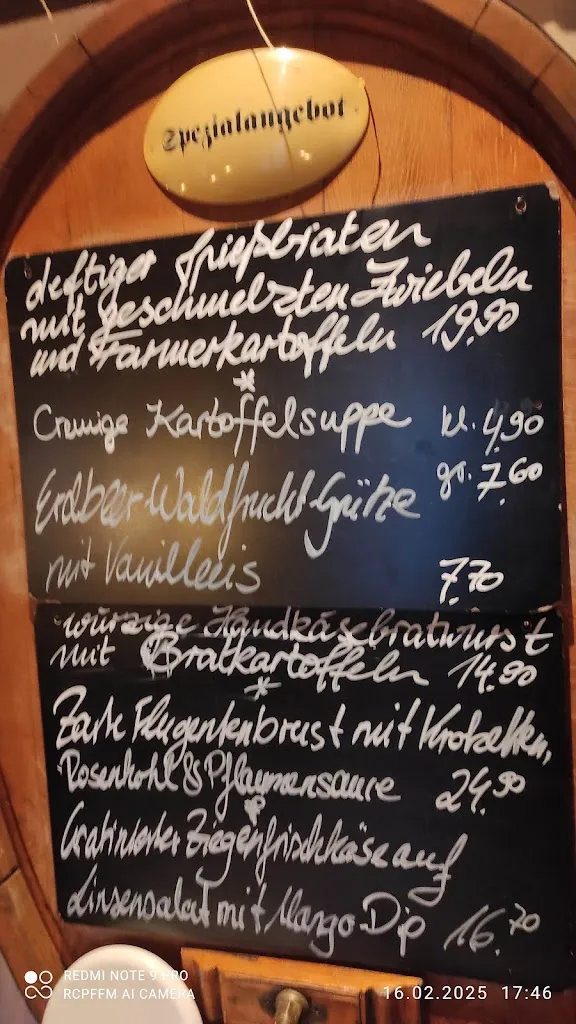 Spezialangebot
deftiger Spießbraten
mit geschmelzten Zwiebeln
und Farmerkartoffeln 19.90
*
Cremige Kartoffelsuppe kl. 4,90
gr. 7.60
Erdbeer-Waldfrucht-Grütze
mit Vanilleeis 7.70
würzige Handkäsebratwurst
mit Bratkartoffeln 14.90
*
Zarte Flugentenbrust mit Kroketten,
Rosenkohl & Pflaumensauce 24.90
Gratinierter Ziegenfrischkäse auf
Linsensalat mit Mango Dip 16.70
REDMI NOTE 9 PRO
RCPFFM AI CAMERA
16.02.2025 17:46